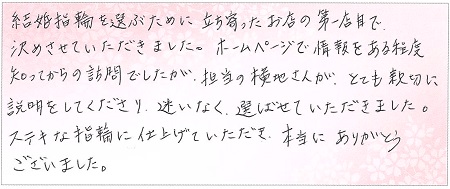 結婚指輪を選ぶために立ち寄ったお店の第一店目で、
決めさせていただきました。ホームページで情報をある程度
知ってからの訪問でしたが、担当の横地さんが、とても親切に
説明をしてくださり、迷いなく、選ばせていただきました。
ステキな指輪に仕上げていただき、本当に ありがとう
ございました。